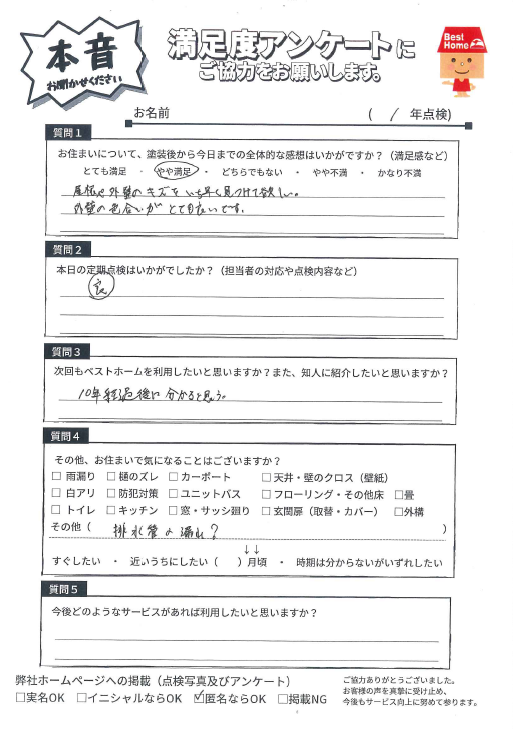 本音
お聞かせください
満足度アンケートに
ご協力をお願いします。
Best
Home
お名前 ( / 年点検)
質問1
お住まいについて、塗装後から今日までの全体的な感想はいかがですか？（満足感など）
とても満足 ・ やや満足 ・ どちらでもない ・ やや不満 ・ かなり不満
屋根や外壁のキズをいち早く見つけて欲しい。
外壁の色合いがとても良いです。
質問2
本日の定期点検はいかがでしたか？（担当者の対応や点検内容など）
良
質問3
次回もベストホームを利用したいと思いますか？また、知人に紹介したいと思いますか？
10年経過後に分かると思う。
質問4
その他、お住まいで気になることはございますか？
□ 雨漏り □ 樋のズレ □ カーポート □ 天井・壁のクロス（壁紙）
□ 白アリ □ 防犯対策 □ ユニットバス □ フローリング・その他床 □畳
□ トイレ □ キッチン □ 窓・サッシ廻り □ 玄関扉（取替・カバー） □外構
その他（ 排水管の漏れ？ ）
↓↓
すぐしたい ・ 近いうちにしたい（ ）月頃 ・ 時期は分からないがいずれしたい
質問5
今後どのようなサービスがあれば利用したいと思いますか？
弊社ホームページへの掲載（点検写真及びアンケート）
□実名OK □イニシャルならOK ☑匿名ならOK □掲載NG
ご協力ありがとうございました。
お客様の声を真摯に受け止め、
今後もサービス向上に努めて参ります。